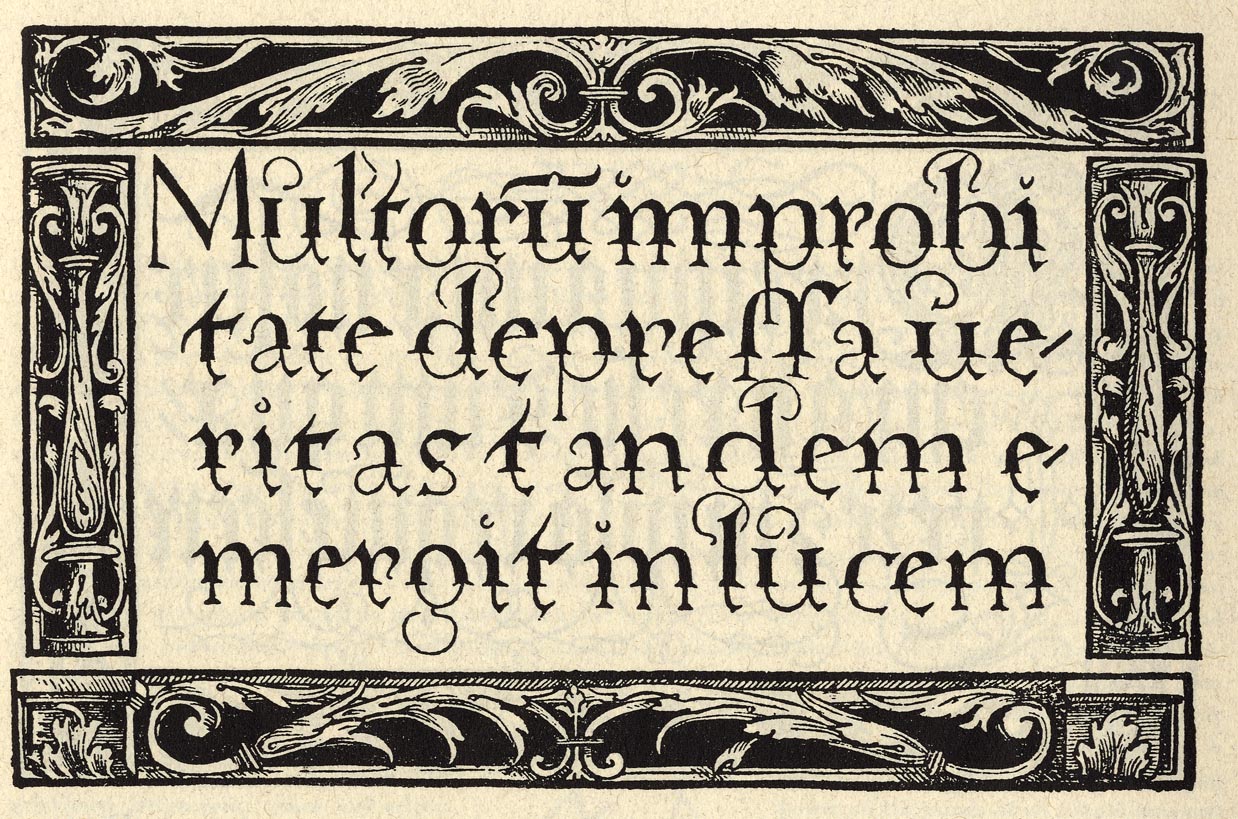 Multorū improbi
tate depreſſa ue-
ritas tandem e-
mergit in lucem